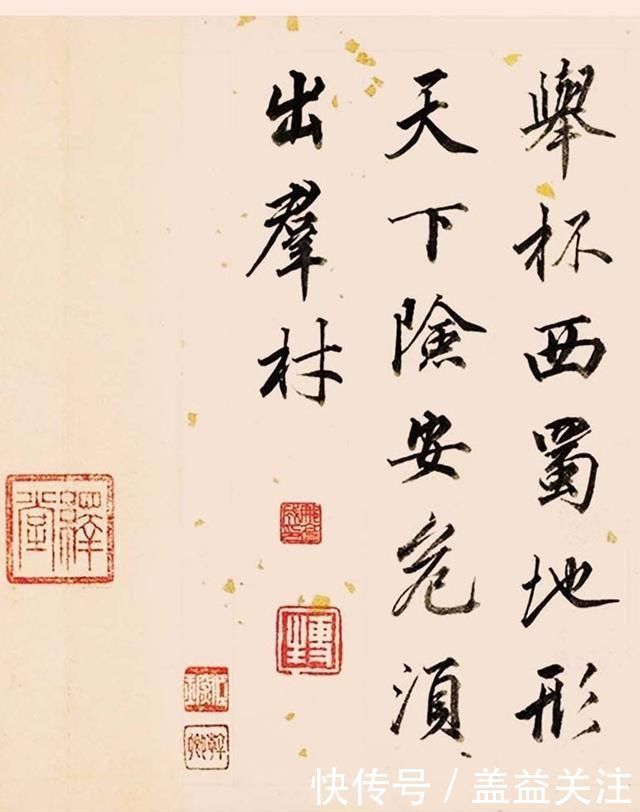 舉杯西蜀地形
天下險安危須
出羣材
快传号/盖益关注